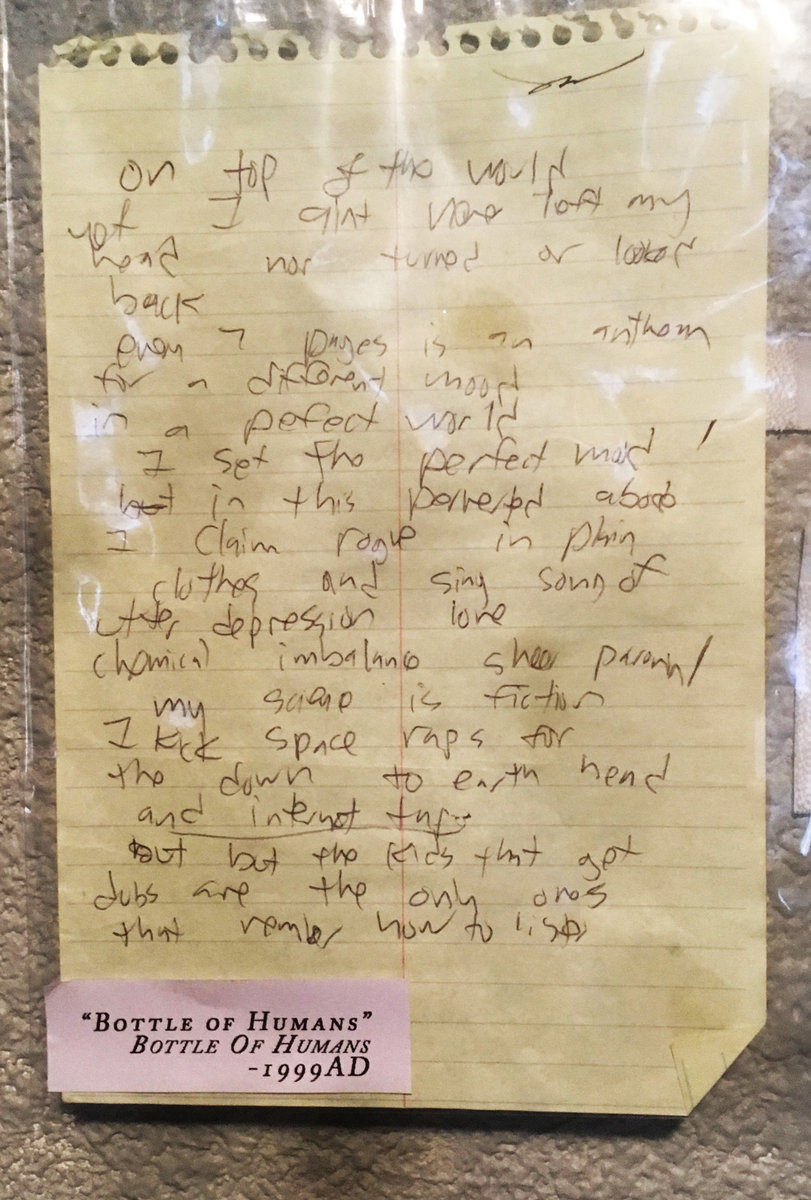 on top of the world
yet I aint
head nor turned or looked
back
even 7 pages is an anthem
for a different mood
in a pefect world
I set the perfect mood
but in this perverted abode
I claim rogue in plain
clothes and sing song of
utter depression love
chemical imbalance sheer
my is fiction
I kick space raps for
the down to earth head
and internet
but but the kids that get
dubs are the only ones
that rember how to
"BOTTLE OF HUMANS"
BOTTLE OF HUMANS
-1999AD